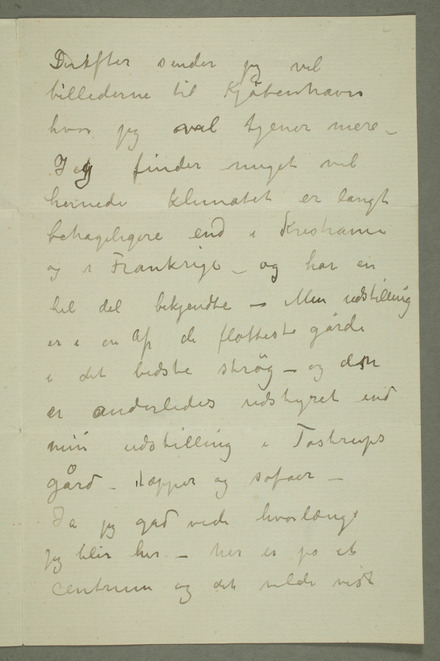 Derefter sender jeg vel
billederne til Kjöbenhavn
hvor jeg vel tjener mere –
Jeg finder meget vel
hernede klimatet er langt
behageligere end i Kristiania
og i Frankrige – og har en
hel del bekjendte – Min udstilling
er i en af de flotteste gårde
i det bedste strög – og den
er anderledes udstyret end
min udstilling i Tostrups
gård – tæpper og sofaer –
Ja jeg gad vide hvorlænge
jeg blir her – her er jo et
centrum og det vilde vist